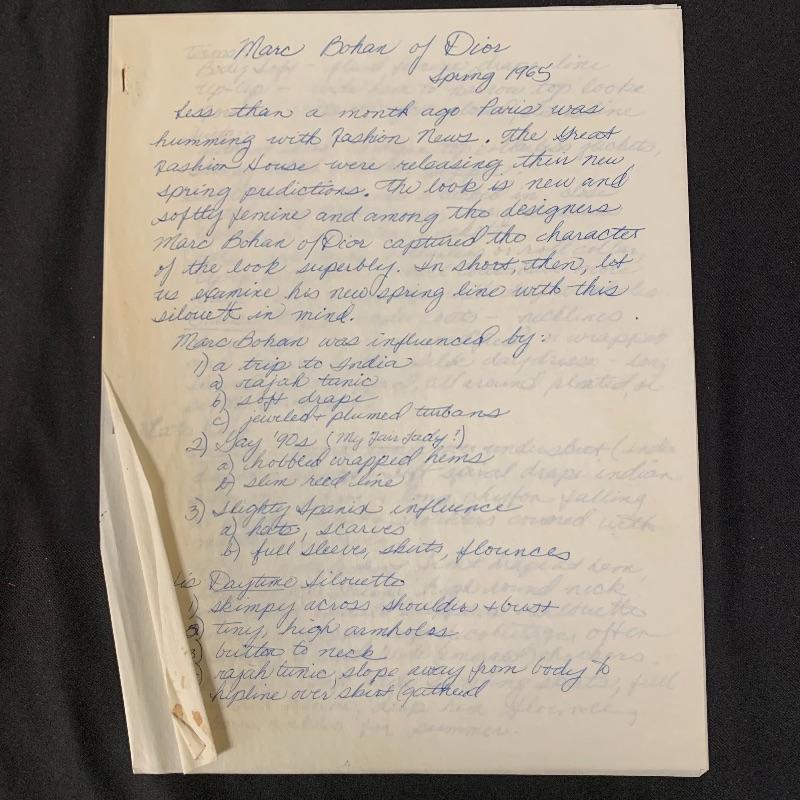 Marc Bohan of Dior
Spring 1965
Less than a month ago Paris was
humming with Fashion News. The Great
Fashion House were releasing their new
spring predictions. The look is new and
softly femine and among the designers
Marc Bohan of Dior captured the character
of the look superbly. In short, then, let
us examine his new spring line with this
silouett in mind.
Marc Bohan was influenced by:
1) a trip to India
a) rajah tunic
b) soft drape
c) jeweled + plumed turbans
2) Gay '90s (My Fair Lady!)
a) hobbled wrapped hems
b) slim reed line
3) Slighty Spanish influence
a) hats, scarves
b) full sleeves, skirts, flounces
is Daytime Silouette
1) skimpy across shoulder + bust
2) tiny, high armholes
3) button to neck
rajah tunic slope away from body to
hipline over skirt gathered